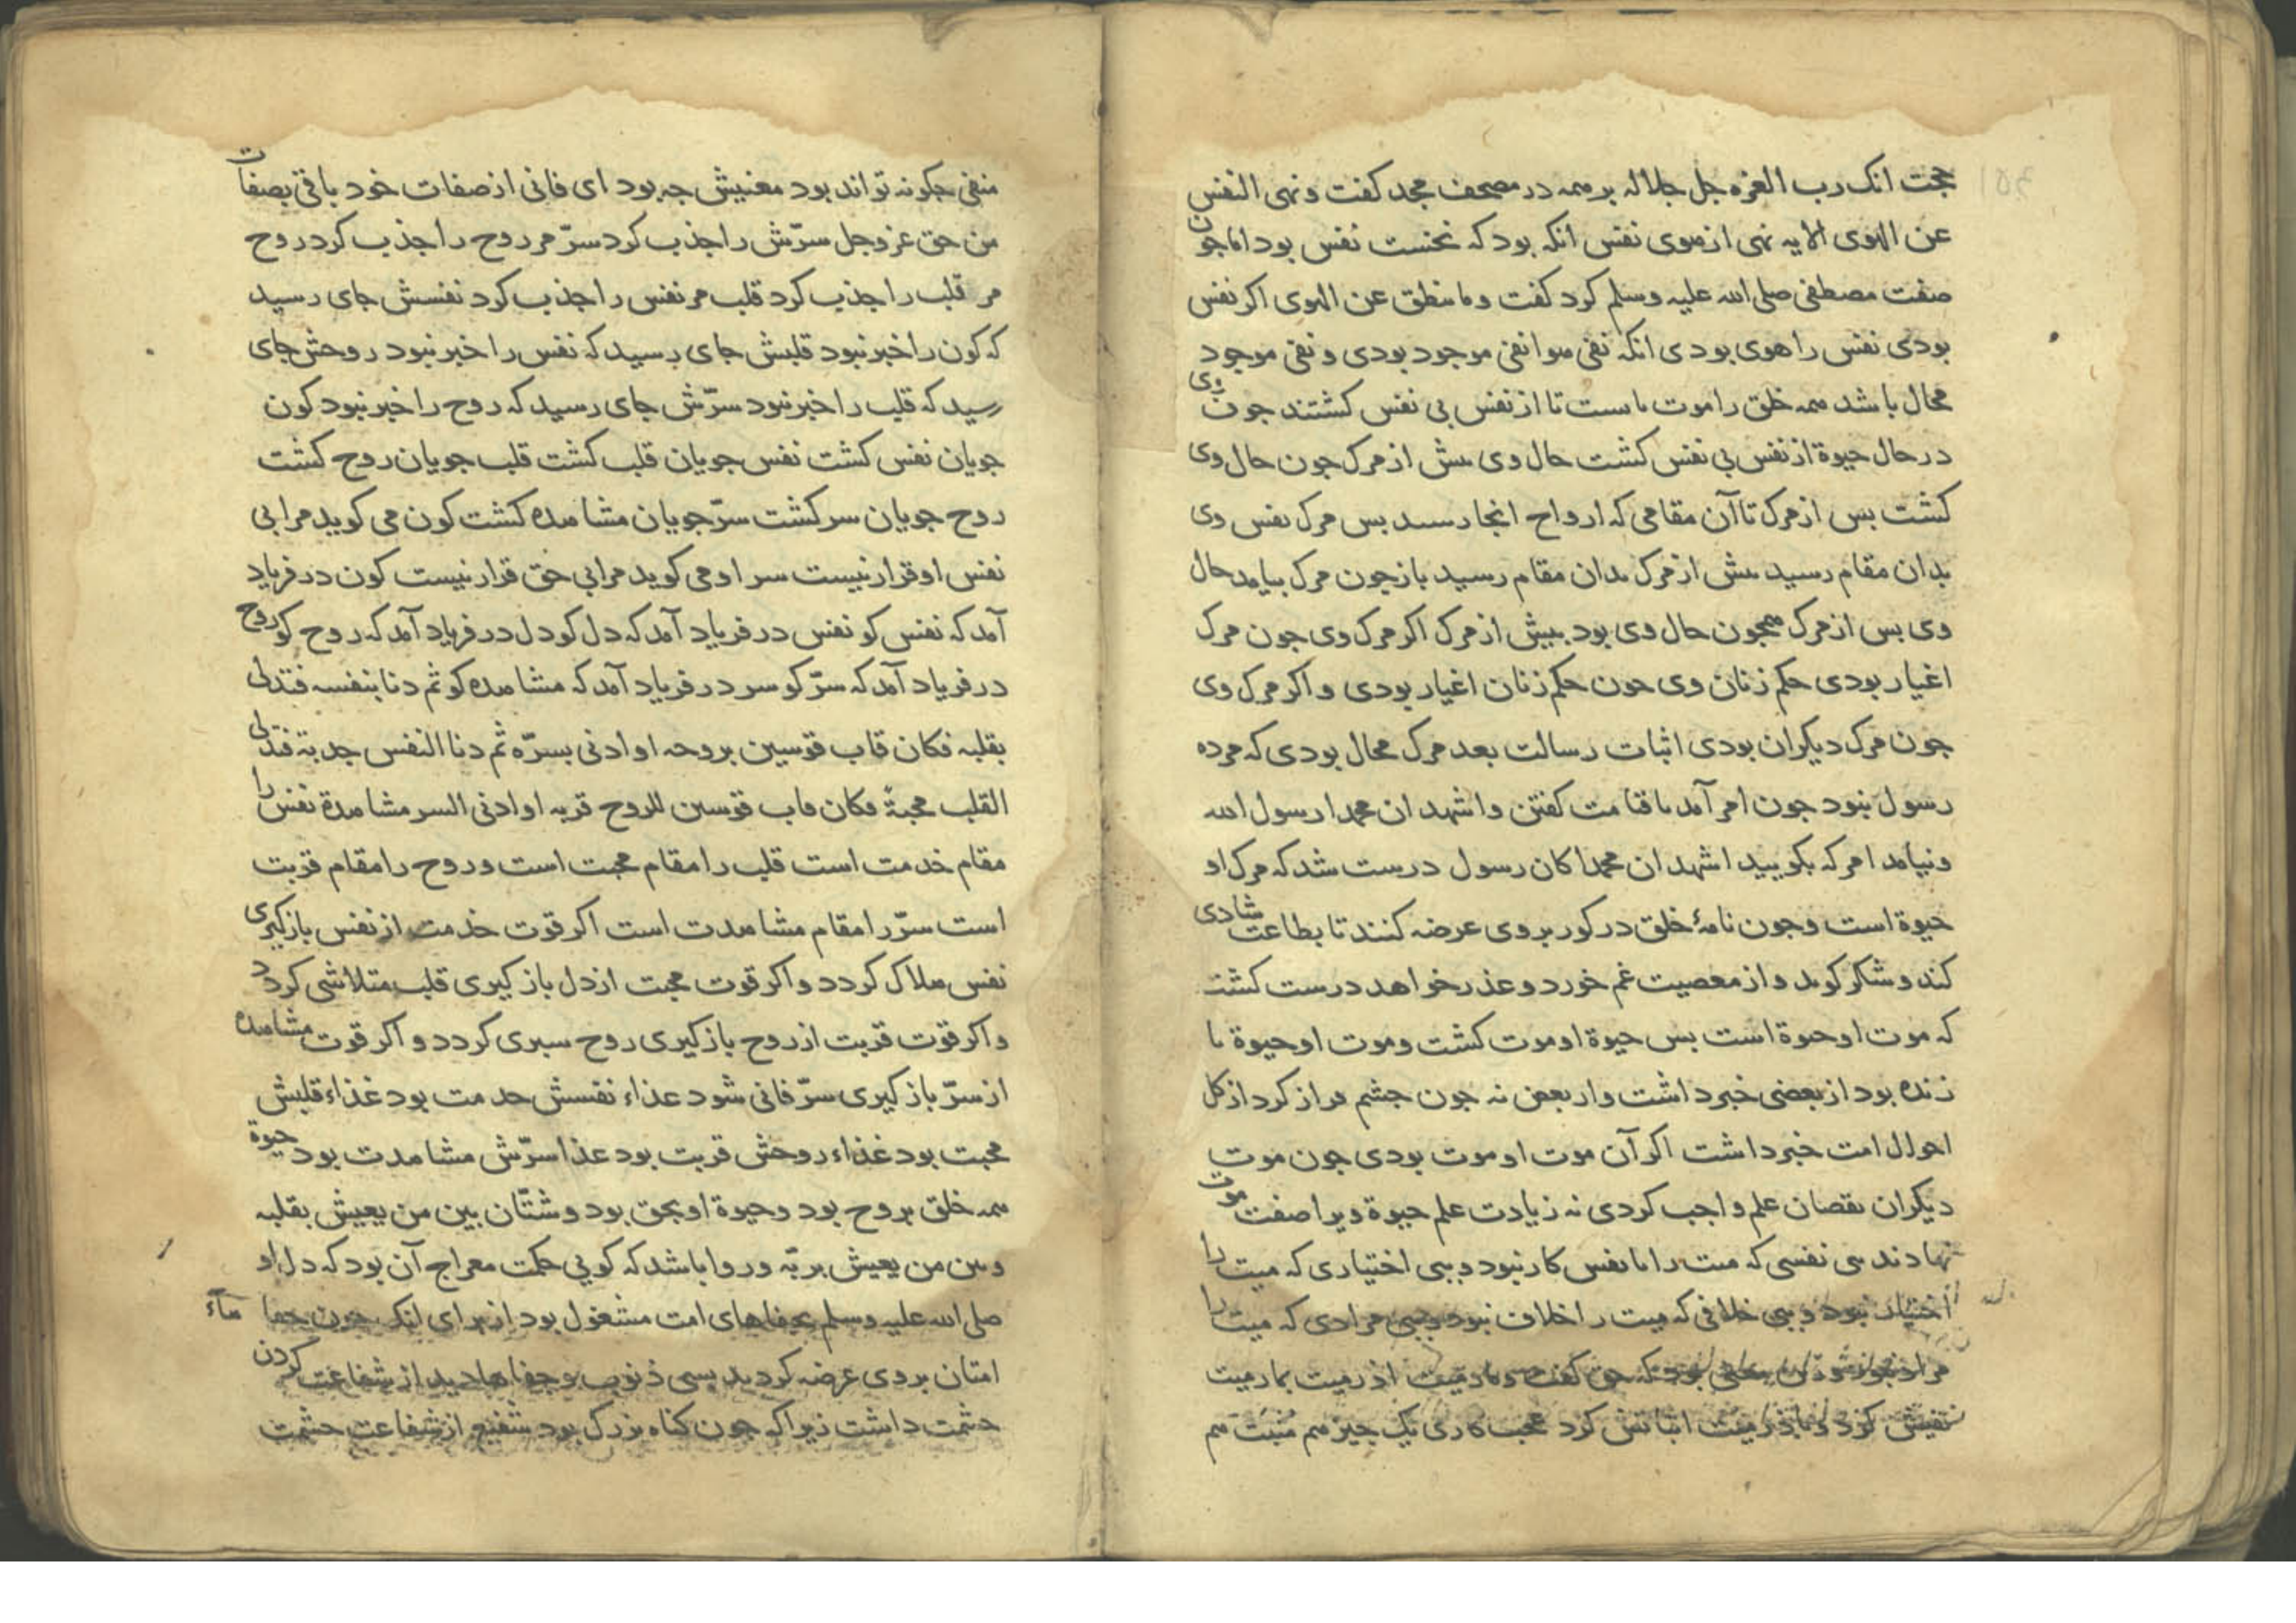 حجت انک رب العزه جل جلاله بر همه در مصحف مجد کفت ونهی النفس
عن الهوی الایه نهی از هوی نفس انکه بود که نخست نفس بود اما جون
صفت مصطفی صلی الله علیه وسلم کرد کفت وما ینطق عن الهوی اکر نفس
بودی نفس را هوی بودی انکه نفی هوا نفی موجود بودی و نفی موجود
محال باشد همه خلق را موت بایست تا از نفس بی نفس کشتند جون وی
در حال حیوة از نفس بی نفس کشت حال وی پیش از مرک جون حال وی
کشت بس از مرک تا آن مقامی که ارواح انجا رسند بس مرک نفس وی
بدان مقام رسید پیش از مرک بدان مقام رسید باز جون مرک بیامد حال
وی بس از مرک همجون حال وی بود بیش از مرک اکر مرک وی جون مرک
اغیار بودی حکم زنان وی جون حکم زنان اغیار بودی و اکر مرک وی
جون مرک دیکران بودی اثبات رسالت بعد مرک محال بودی که مرده
رسول نبود جون امر آمد باقامت کفتن واشهد ان محمدا رسول الله
ونیامد امر که بکویید اشهد ان محمدا کان رسول درست شد که مرک او
حیوة است وجون نامهٔ خلق در کور بر وی عرضه کنند تا بطاعت شادی
کند و شکر کوید و از معصیت غم خورد و عذر خواهد درست کشت
که موت او حیوة است بس حیوة او موت کشت وموت او حیوة تا
زنده بود از بعضی خبر داشت واز بعض نه جون جشم فراز کرد از کل
احوال امت خبر داشت اکر آن موت او موت بودی جون موت
دیکران نقصان علم واجب کردی نه زیادت علم حیوة ویرا صفت موت
نهادند بی نفسی که میت را با نفس کار نبود و بی اختیاری که میت را
اختیار نبود و بی خلافی که میت را خلاف نبود و بی مرادی که میت را
مراد نبود حق کفت وما رمیت اذ رمیت بمارمیت
نفیش کرد و باذ رمیت اثباتش کرد عجب کاری یک جیز هم مثبت هم
منفی جکونه تواند بود معنیش جه بود ای فانی از صفات خود باقی بصفات
من حق عز وجل سرّش را جذب کرد سرّ مر روح را جذب کرد روح
مر قلب را جذب کرد قلب مر نفس را جذب کرد نفسش جای رسید
که کون را خبر نبود قلبش جای رسید که نفس را خبر نبود روحش جای
رسید که قلب را خبر نبود سرّش جای رسید که روح را خبر نبود کون
جویان نفس کشت نفس جویان قلب کشت قلب جویان روح کشت
روح جویان سر کشت سرّ جویان مشاهده کشت کون می کوید مرا بی
نفس او قرار نیست سر او می کوید مرا بی حق قرار نیست کون در فریاد
آمد که نفس کو نفس در فریاد آمد که دل کو دل در فریاد آمد که روح کو روح
در فریاد آمد که سرّ کو سر در فریاد آمد که مشاهده کو ثم دنا بنفسه فتدلی
بقلبه فکان قاب قوسین بروحه او ادنی بسرّه ثم دنا النفس جدبة فتدلی
القلب محبةً فکان قاب قوسین للروح قربه او ادنی السر مشاهدة نفس را
مقام خدمت است قلب را مقام محبت است و روح را مقام قربت
است سرّ را مقام مشاهدت است اکر قوت خدمت از نفس باز کیری
نفس هلاک کردد و اکر قوت محبت از دل باز کیری قلب متلاشی کردد
و اکر قوت قربت از روح باز کیری روح سبری کردد و اکر قوت مشاهده
از سرّ باز کیری سرّ فانی شود عذاء نفسش خدمت بود غذاء قلبش
محبت بود غذاء روحش قربت بود عذا سرّش مشاهدت بود حیوة
همه خلق بروح بود وحیوة او بحق بود وشتّان بین من یعیش بقلبه
وبین من یعیش بربّه و روا باشد که کویی حکمت معراج آن بود که دل او
صلی الله علیه وسلم بجفاهای امت مشغول بود از برای انک جون جفا هاء
امتان بر وی عرضه کردند بسی ذنوب و جفاها دید از شفاعت کردن
حشمت داشت زیرا که جون کناه بزرک بود شفیع از شفاعت حشمت